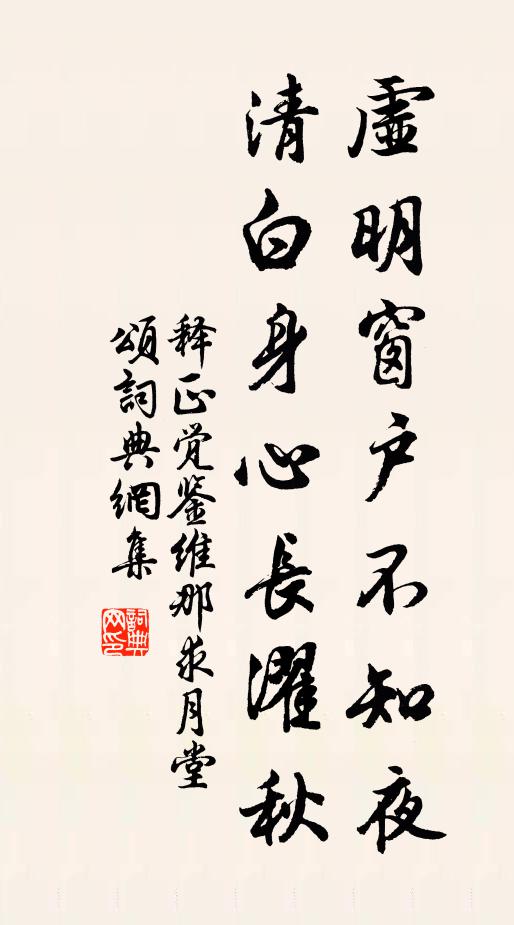 虛明窗户不知夜
清白身心長濯秋
释正觉鉴維那求月堂
頌詞典網集
詞典网印